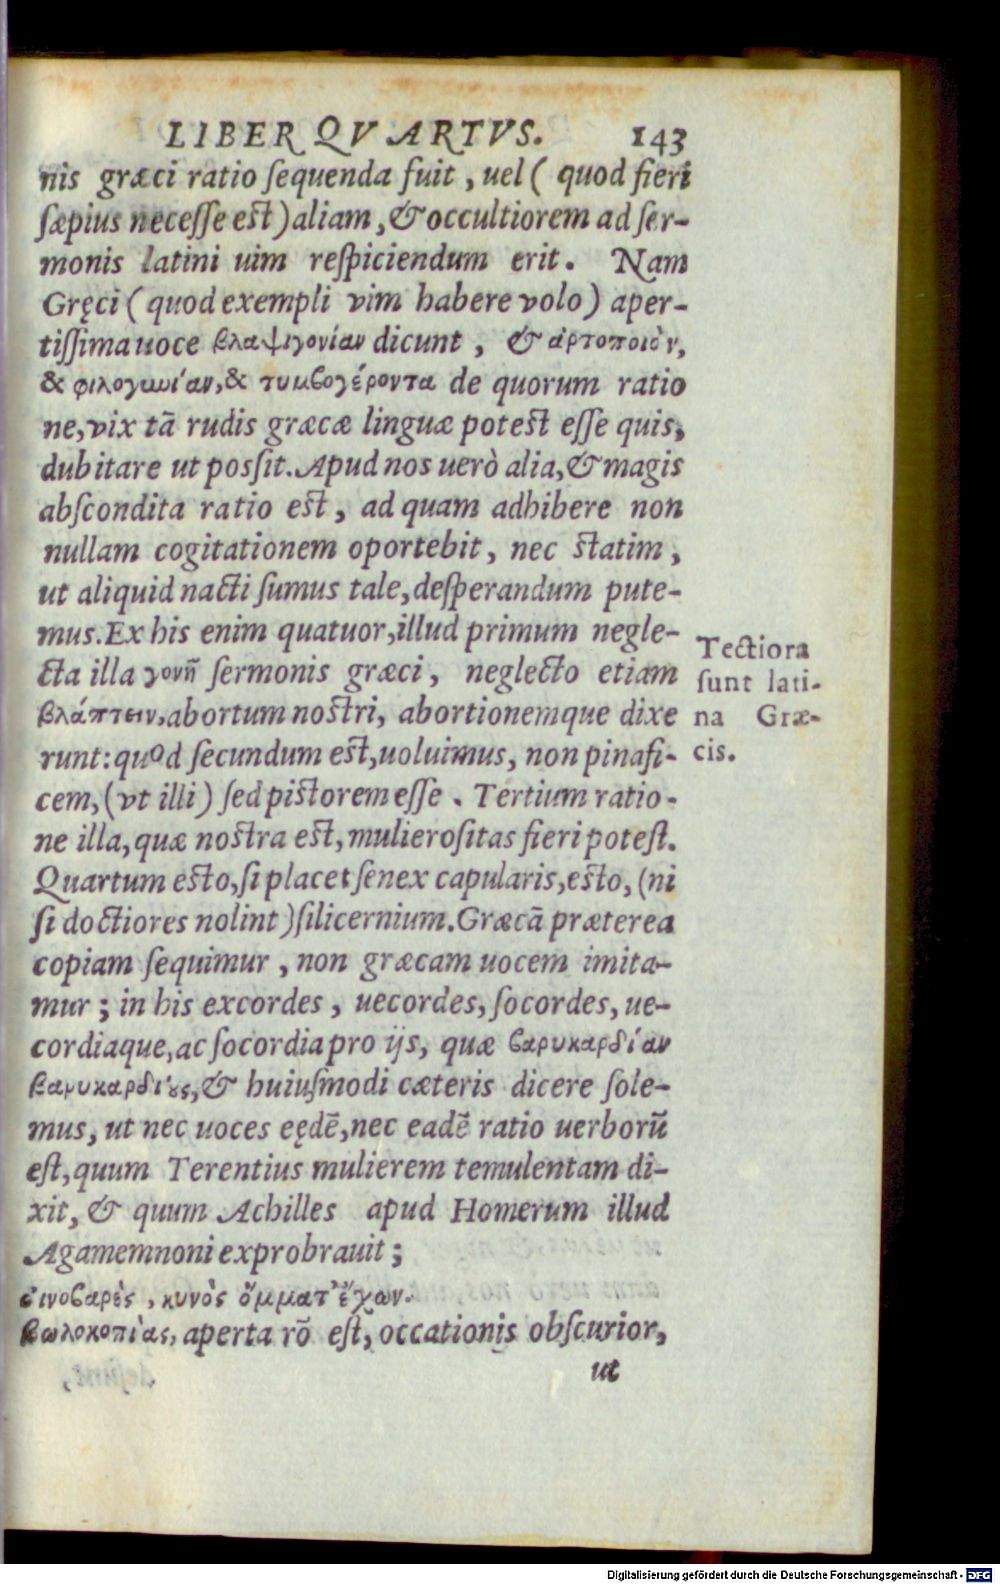 LIBER QVARTVS. 143
nis græci ratio ſequenda fuit, uel ( quod fieri
ſæpius neceſſe est) aliam, & occultiorem ad ſer-
monis latini uim reſpiciendum erit. Nam
Gręci ( quod exempli vim habere volo ) aper-
tiſſima uoce βλαψιγονίαν dicunt, & ἀρτοποιὸν,
& φιλογυνίαν, & τυμβογέροντα de quorum ratio
ne, vix tā rudis græcæ linguæ potest eſſe quis,
dubitare ut poſsit. Apud nos uerò alia, & magis
abſcondita ratio est, ad quam adhibere non
nullam cogitationem oportebit, nec statim,
ut aliquid nacti ſumus tale, deſperandum pute-
mus. Ex his enim quatuor, illud primum negle-
cta illa γονῆ ſermonis græci, neglecto etiam
βλάπτειν, abortum nostri, abortionemque dixe
runt: quod ſecundum est, uoluimus, non pinaſi-
cem, (vt illi) ſed pistorem eſſe. Tertium ratio-
ne illa, quæ nostra est, mulieroſitas fieri potest.
Quartum esto, ſi placet ſenex capularis, esto, (ni
ſi doctiores nolint) ſilicernium. Græcā præterea
copiam ſequimur, non græcam uocem imita-
mur; in his excordes, uecordes, ſocordes, ue-
cordiaque, ac ſocordia pro ijs, quæ βαρυκαρδίαν
βαρυκαρδίους, & huiuſmodi cæteris dicere ſole-
mus, ut nec uoces eędē, nec eadē ratio uerborū
est, quum Terentius mulierem temulentam di-
xit, & quum Achilles apud Homerum illud
Agamemnoni exprobrauit;
οἰνοβαρὲς, κυνὸς ὄμματ' ἔχων.
βωλοκοπίας, aperta rō est, occationis obſcurior,
ut
Tectiora
ſunt lati-
na Græ-
cis.
Digitalisierung gefördert durch die Deutsche Forschungsgemeinschaft - DFG